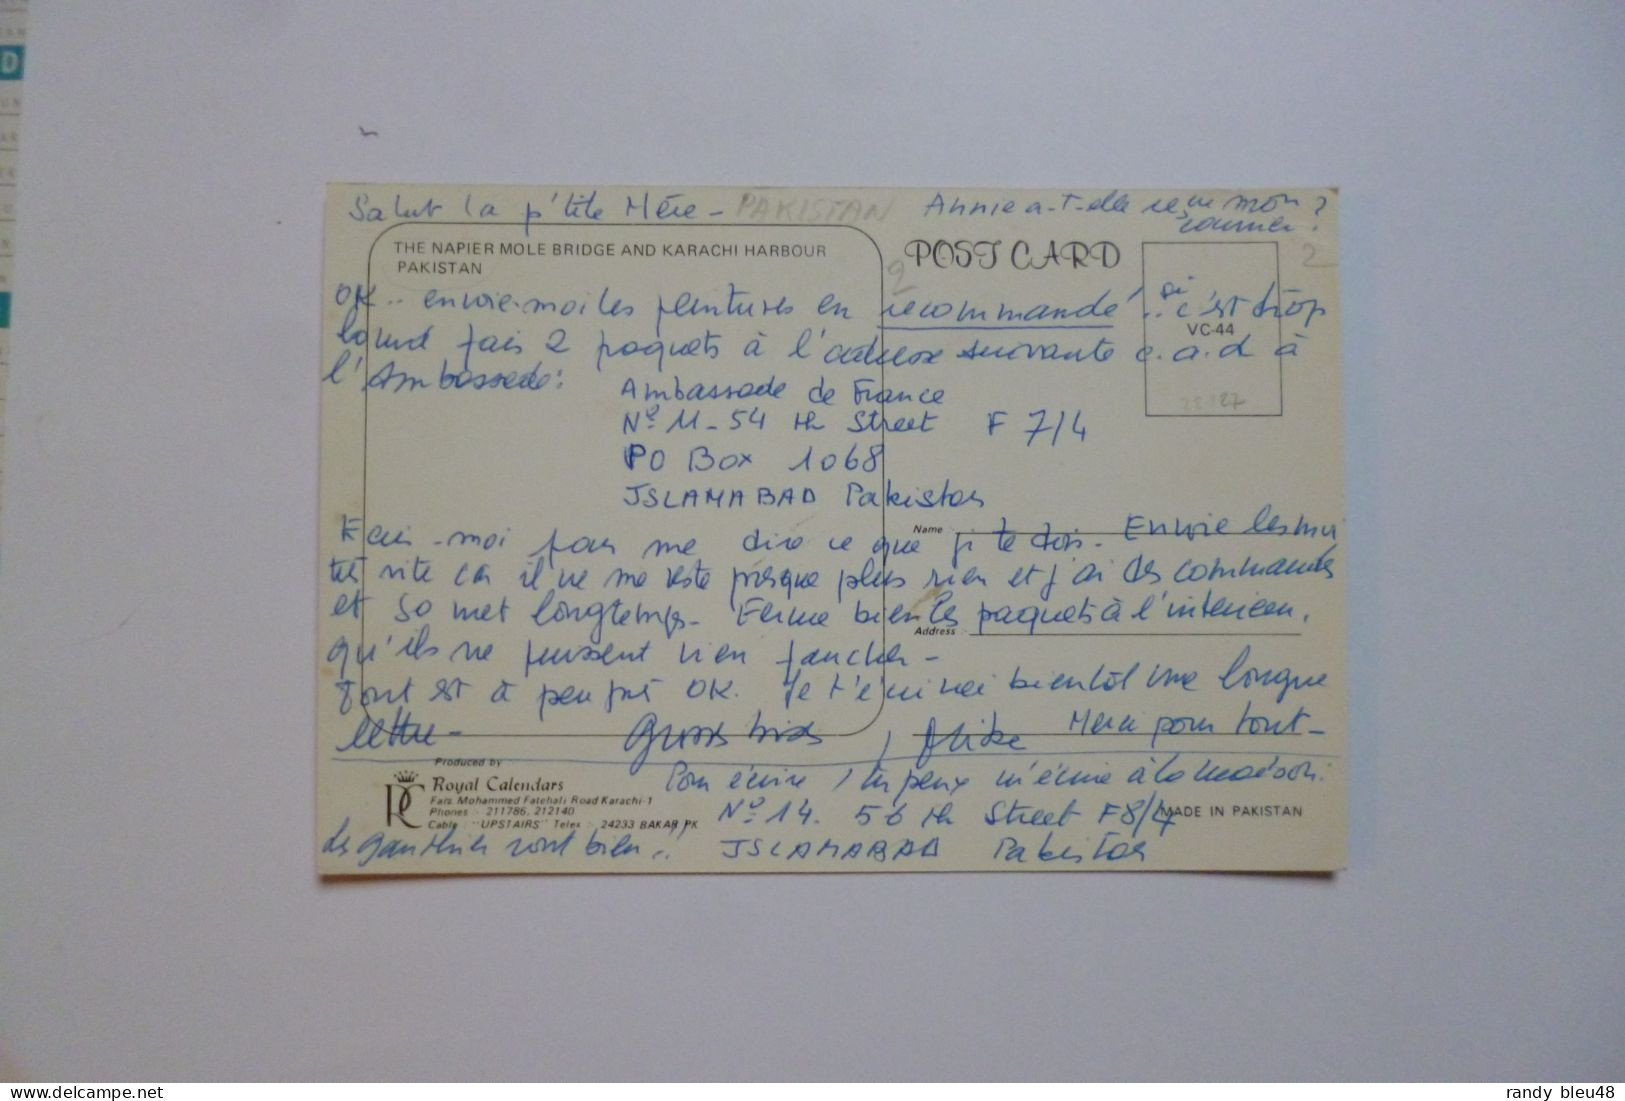 Salut la p'tite Mère - PAKISTAN
Annie a-t-elle reçu mon
courrier ?
2
THE NAPIER MOLE BRIDGE AND KARACHI HARBOUR
PAKISTAN
POST CARD
2
OK.. envoie-moi les peintures en recommandé !.. si c'est trop
VC-44
lourd fais 2 paquets à l'adresse suivante c.a.d à
l'Ambassade :
Ambassade de France
Nº 11-54 th Street F 7/4
PO Box 1068
ISLAMABAD Pakistan
Name
Fais-moi pars me dire ce que j'te dois. Envoie les moi
très vite car il ne me reste presque plus rien et j'ai des commandes
et so met longtemps. Ferme bien les paquets à l'intérieur,
Address
qu'ils ne puissent rien faucher -
Tout est à peu près OK. Je t'écrirai bientôt une longue
lettre - Gross bises, Mike Merci pour tout -
Produced by
Royal Calendars
Faiz Mohammed Fatehali Road Karachi-1
Phones : 211786, 212140
Cable : "UPSTAIRS" Telex : 24233 BAKAR PK
Pour écrire, tu peux m'écrire à la maison.
Nº 14. 56 th Street F8/4
MADE IN PAKISTAN
Les Gauthier vont bien..! ISLAMABAD Pakistan
randy bleu48